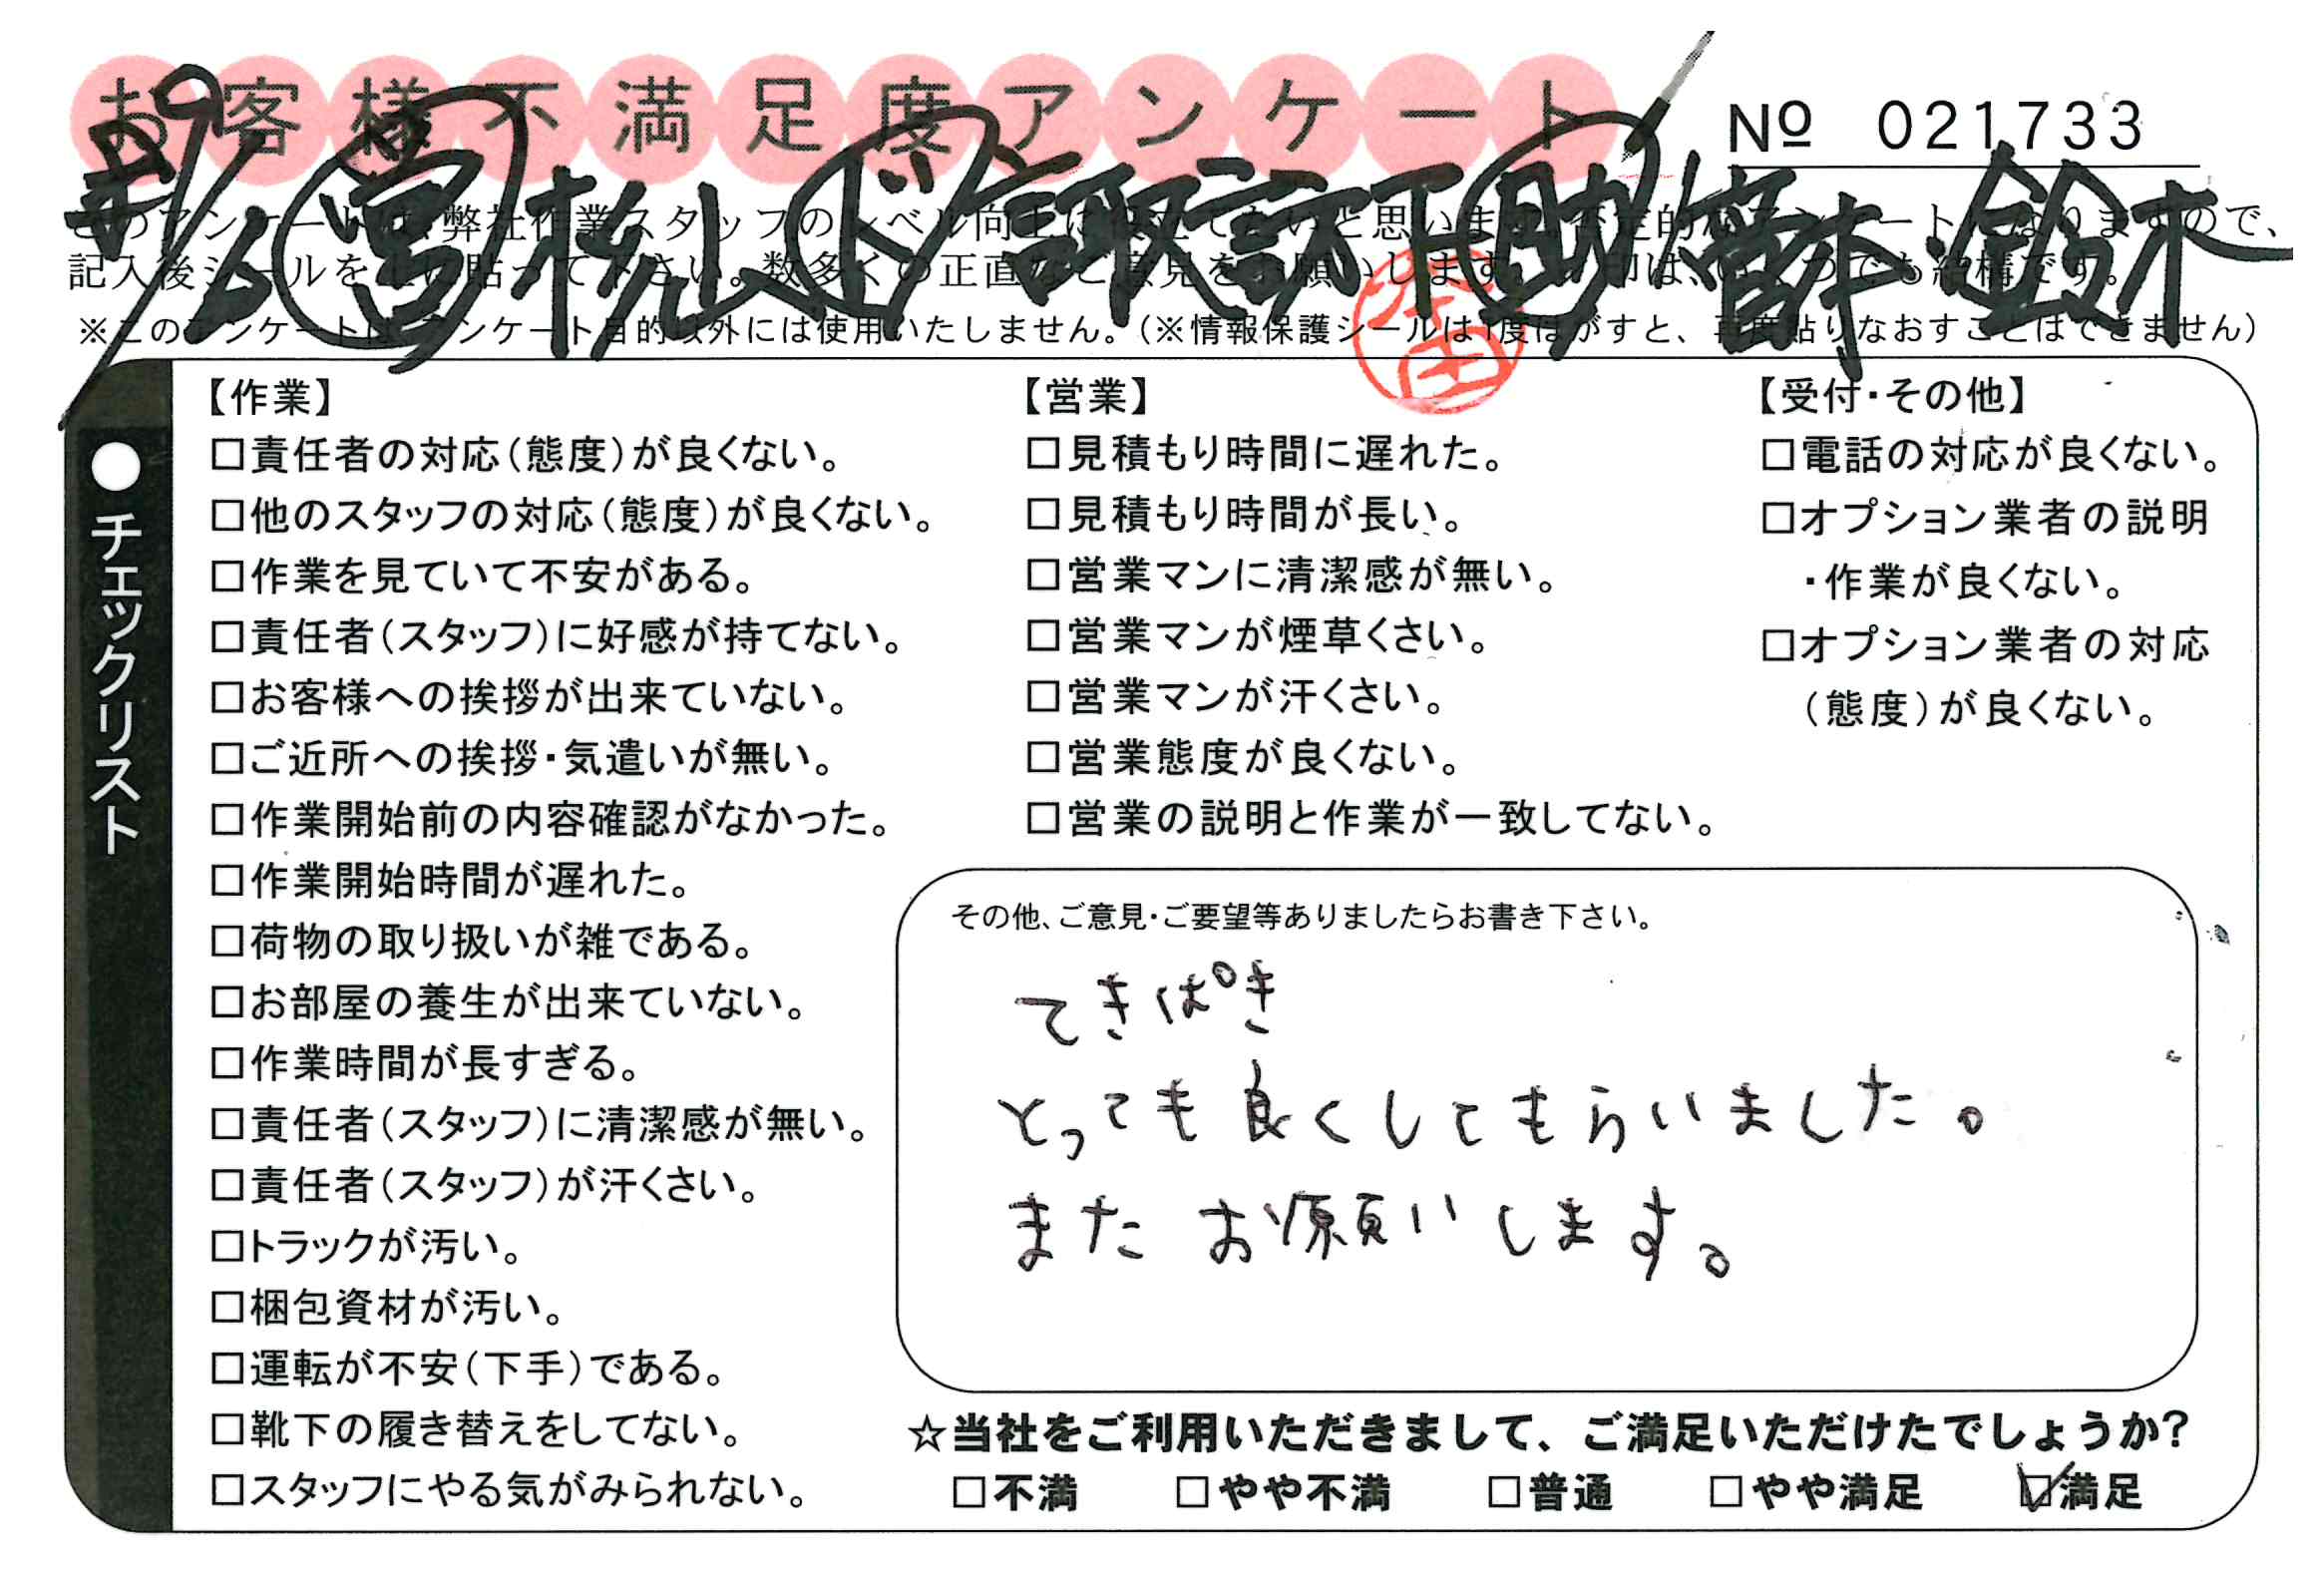 お客様不満足度アンケート
№ 021733
9/6
営 松山 ド 諏訪下 助 齋木・鈴木
このアンケートは、弊社作業スタッフのレベル向上に役立てたいと思います。否定的なアンケートになりますので、
記入後シールを上に貼って下さい。数多くの正直なご意見をお願いします。チェック印は、いくつでも結構です。
※このアンケートは、アンケート目的以外には使用いたしません。(※情報保護シールは1度はがすと、再度貼りなおすことはできません)
●チェックリスト
【作業】
□責任者の対応(態度)が良くない。
□他のスタッフの対応(態度)が良くない。
□作業を見ていて不安がある。
□責任者(スタッフ)に好感が持てない。
□お客様への挨拶が出来ていない。
□ご近所への挨拶・気遣いが無い。
□作業開始前の内容確認がなかった。
□作業開始時間が遅れた。
□荷物の取り扱いが雑である。
□お部屋の養生が出来ていない。
□作業時間が長すぎる。
□責任者(スタッフ)に清潔感が無い。
□責任者(スタッフ)が汗くさい。
□トラックが汚い。
□梱包資材が汚い。
□運転が不安(下手)である。
□靴下の履き替えをしてない。
□スタッフにやる気がみられない。
【営業】
□見積もり時間に遅れた。
□見積もり時間が長い。
□営業マンに清潔感が無い。
□営業マンが煙草くさい。
□営業マンが汗くさい。
□営業態度が良くない。
□営業の説明と作業が一致してない。
【受付・その他】
□電話の対応が良くない。
□オプション業者の説明
・作業が良くない。
□オプション業者の対応
(態度)が良くない。
その他、ご意見・ご要望等ありましたらお書き下さい。
てきぱき
とっても良くしてもらいました。
また お願いします。
☆当社をご利用いただきまして、ご満足いただけたでしょうか?
□不満 □やや不満 □普通 □やや満足 ☑満足